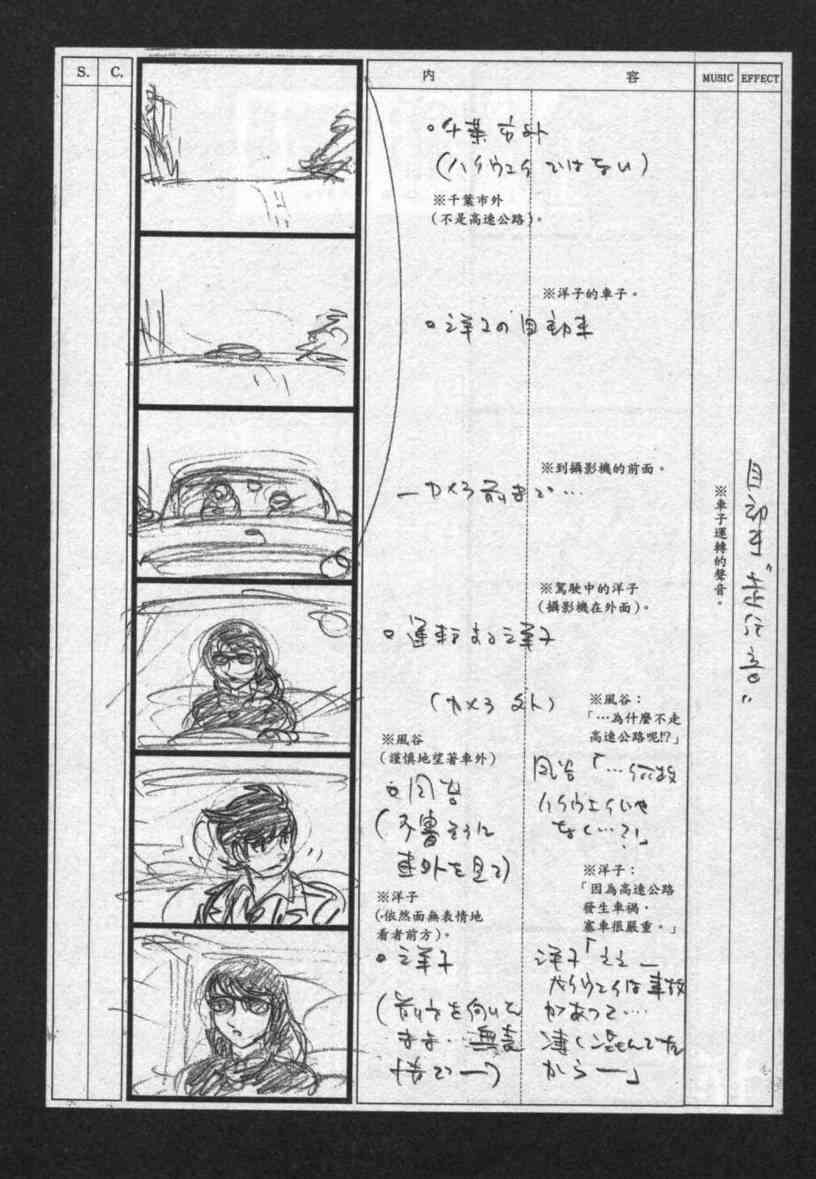 S. C. 内 容 MUSIC EFFECT
○千葉市外
(ハイウエイではない)
※千葉市外
(不是高速公路)。
※洋子的車子。
○洋子の自動車
※到攝影機的前面。
―カメラ前まで…
※車子運轉的聲音。
自動車"走行音"
※駕駛中的洋子
(攝影機在外面)。
○運転する洋子
(カメラ外)
※風谷：
「…為什麼不走
高速公路呢!?」
※風谷
(謹慎地望著車外)
○風谷
(不審そうに
車外を見て)
風谷「…何故
ハイウエイじゃ
なく…?!」
※洋子：
「因為高速公路
發生車禍，
塞車很嚴重。」
※洋子
(依然面無表情地
看者前方)。
○洋子
(前方を向いた
まま…無表
情で―)
洋子「ええ―
ハイウエイは事故
があって…
凄く混んでた
から―」